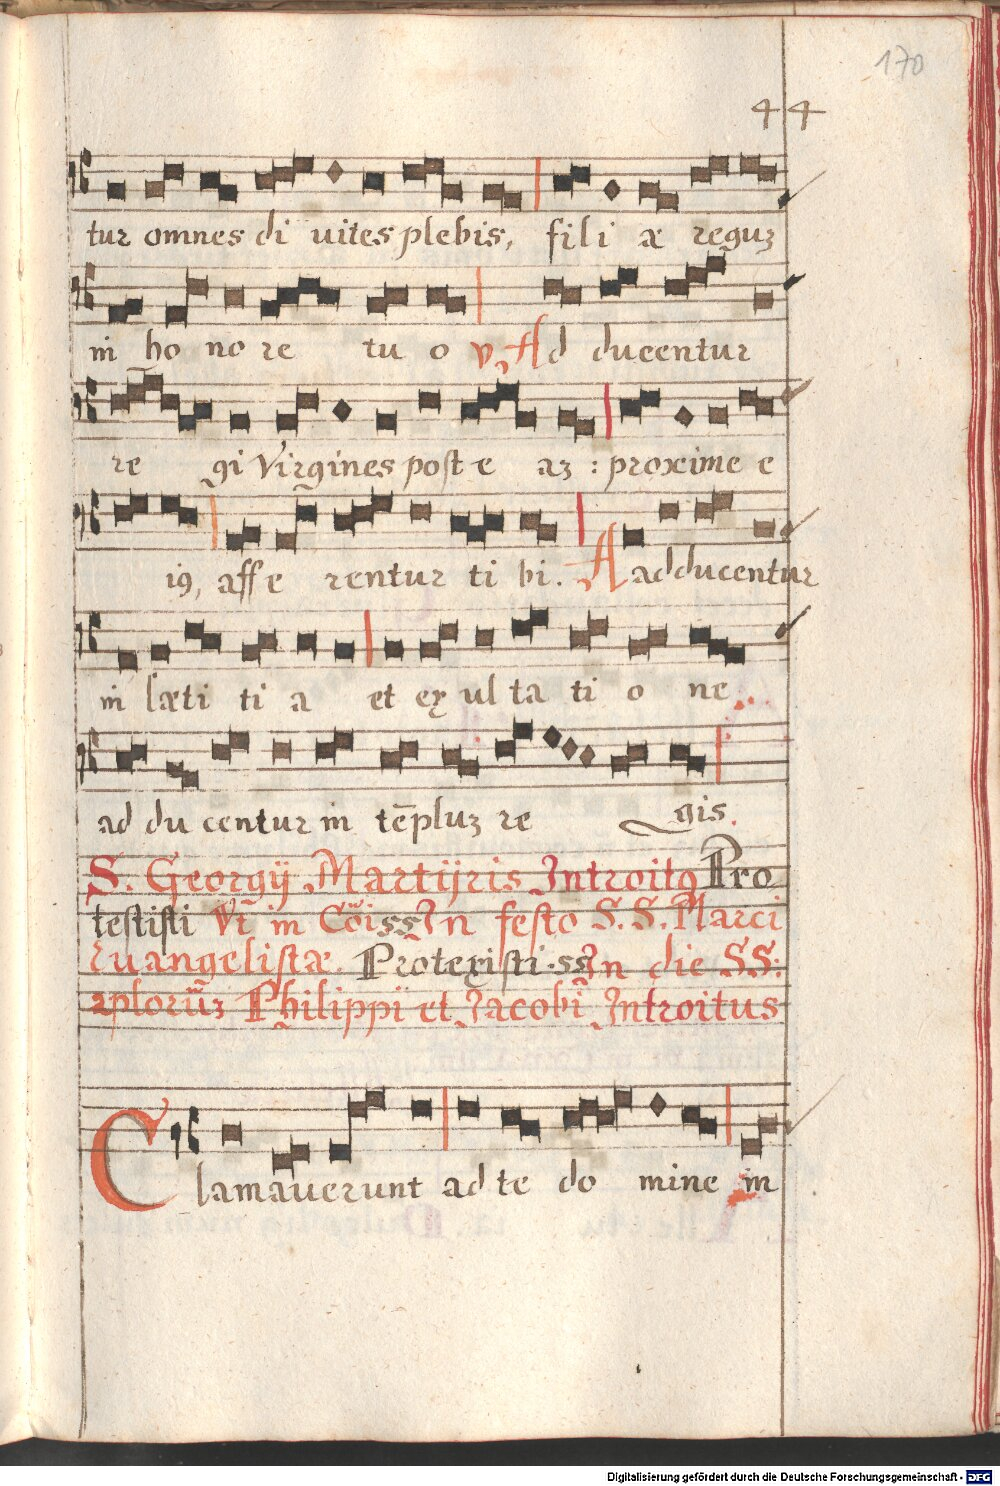 170
44
tur omnes di uites plebis, fili æ reguʒ
in ho no re tu o v. Ad ducentur
re gi Virgines post e aʒ : proxime e
iꝰ, affe rentur ti bi. Aadducentur
in læti ti a et ex ul ta ti o ne.
ad du centur in tēpluʒ re gis.
S. Georgÿ Martÿris Introitꝰ Pro
testisti Vt in Cōiss In festo S. S. Marci
Euangelistæ. Protexisti.ss In die SS:
Aplorūʒ Philippi et Jacobi Introitus
Clamauerunt ad te do mine in
Digitalisierung gefördert durch die Deutsche Forschungsgemeinschaft - DFG